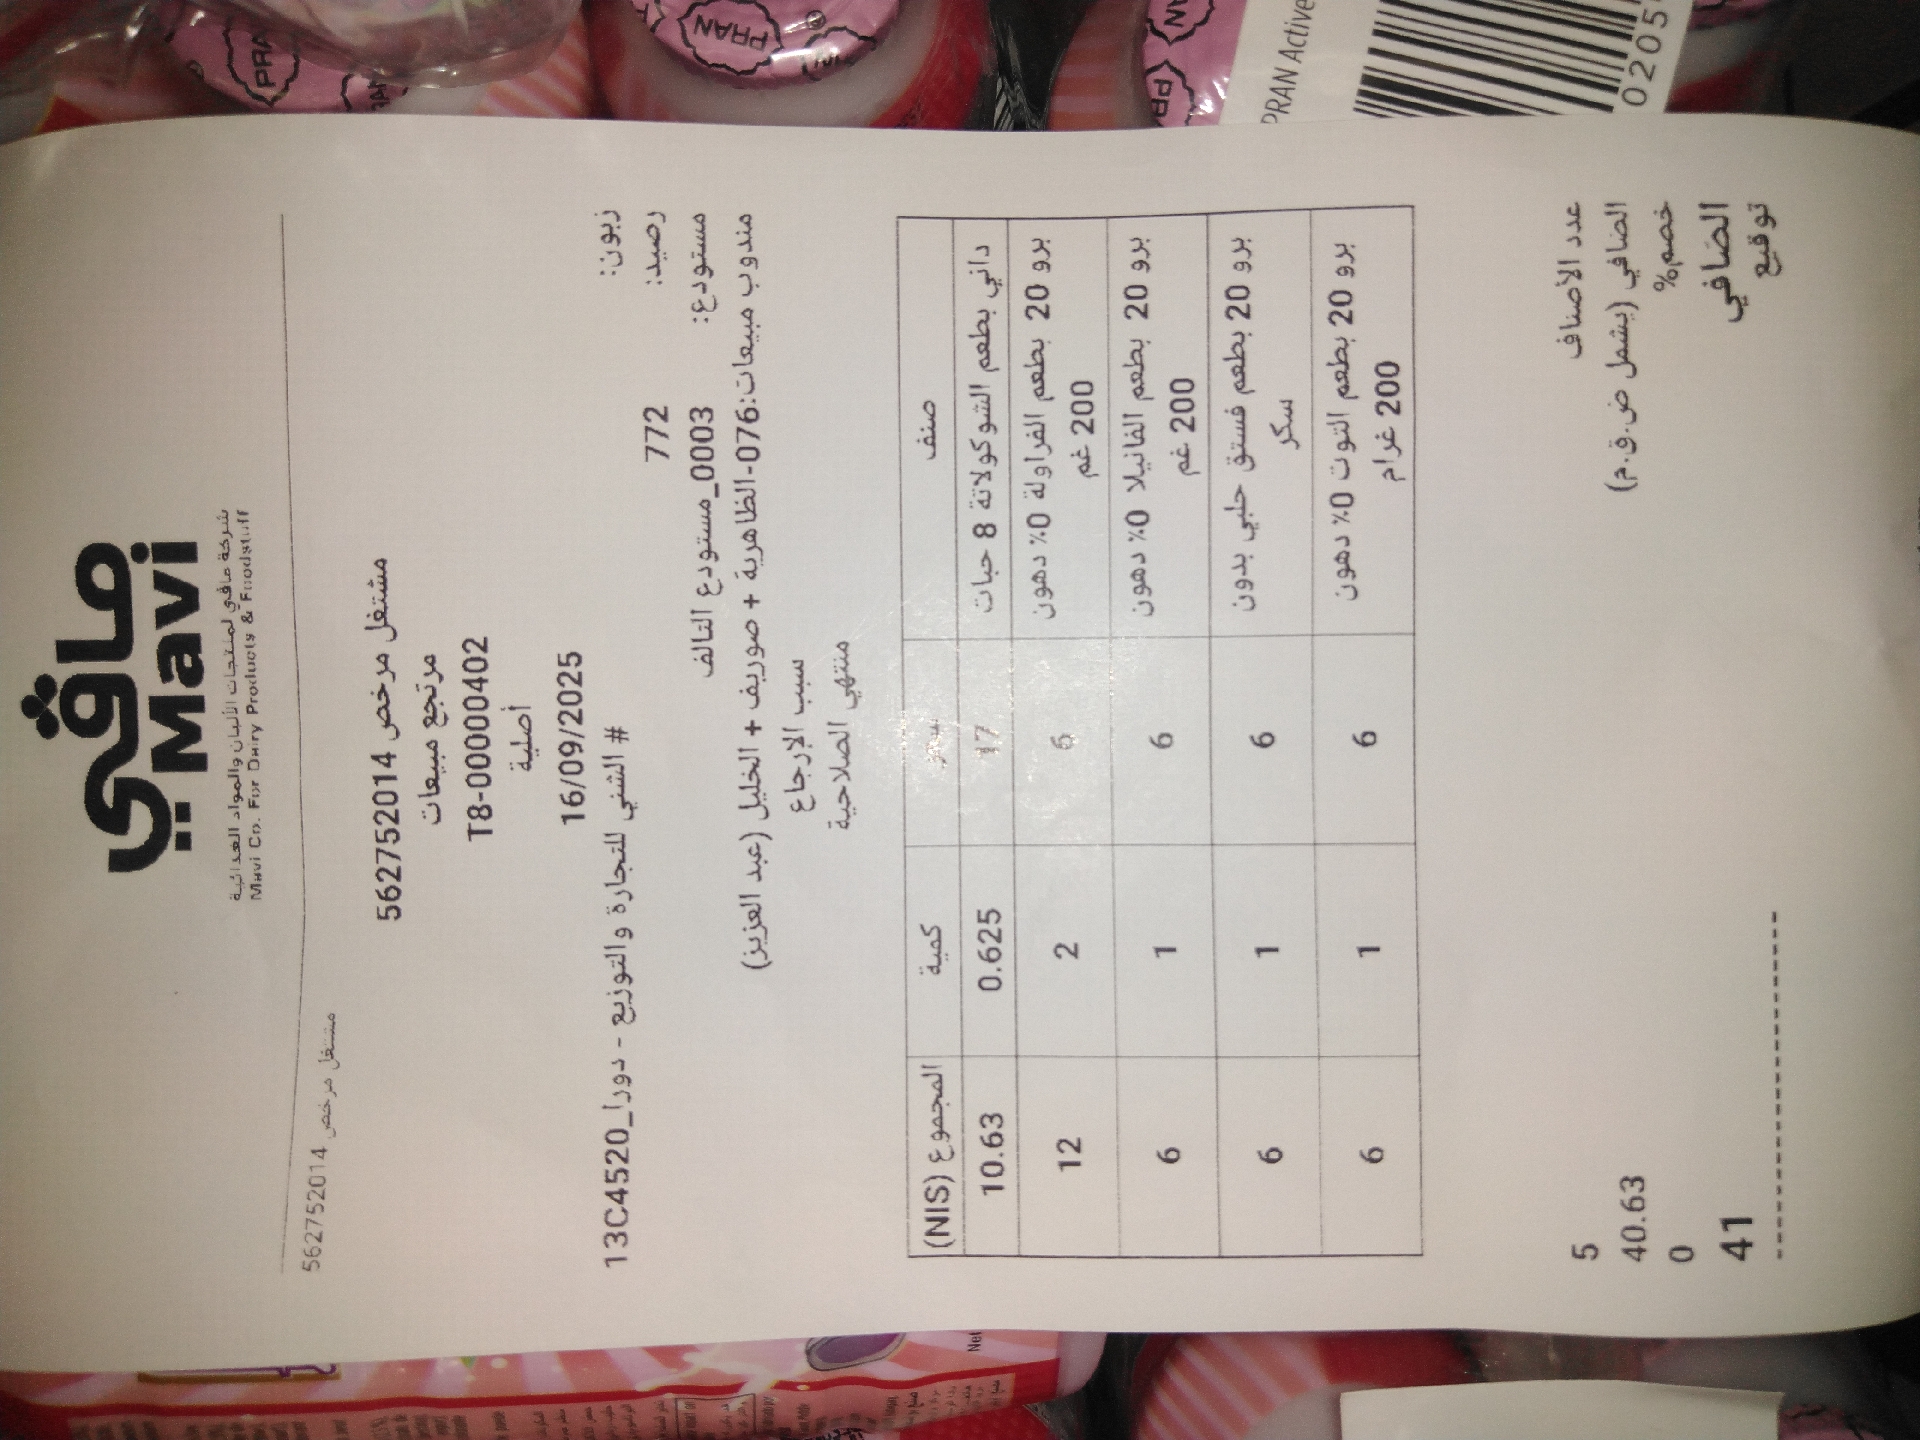 مافي
Mavi
شركة مافي لمنتجات الألبان والمواد الغذائية
Mavi Co. For Dairy Products & Foodstuff
مشتغل مرخص 562752014
مشتغل مرخص 562752014
مرتجع مبيعات
T8-00000402
أصلية
16/09/2025
زبون: # الشني للتجارة والتوزيع - دورا_13C4520
رصيد: 772
مستودع: 0003_مستودع التالف
مندوب مبيعات:076-الظاهرية + صوريف + الخليل (عبد العزيز)
سبب الارجاع
منتهي الصلاحية
صنف سعر كمية المجموع (NIS)
داني بطعم الشوكولاتة 8 حبات 17 0.625 10.63
برو 20 بطعم الفراولة 0٪ دهون 6 2 12
200 غم
برو 20 بطعم الفانيلا 0٪ دهون 6 1 6
200 غم
برو 20 بطعم فستق حلبي بدون 6 1 6
سكر
برو 20 بطعم التوت 0٪ دهون 6 1 6
200 غرام
عدد الأصناف 5
الصافي (يشمل ض.ق.م) 40.63
خصم% 0
الصافي 41
توقيع
PRAN
PRAN
PRAN Active
0205
Net